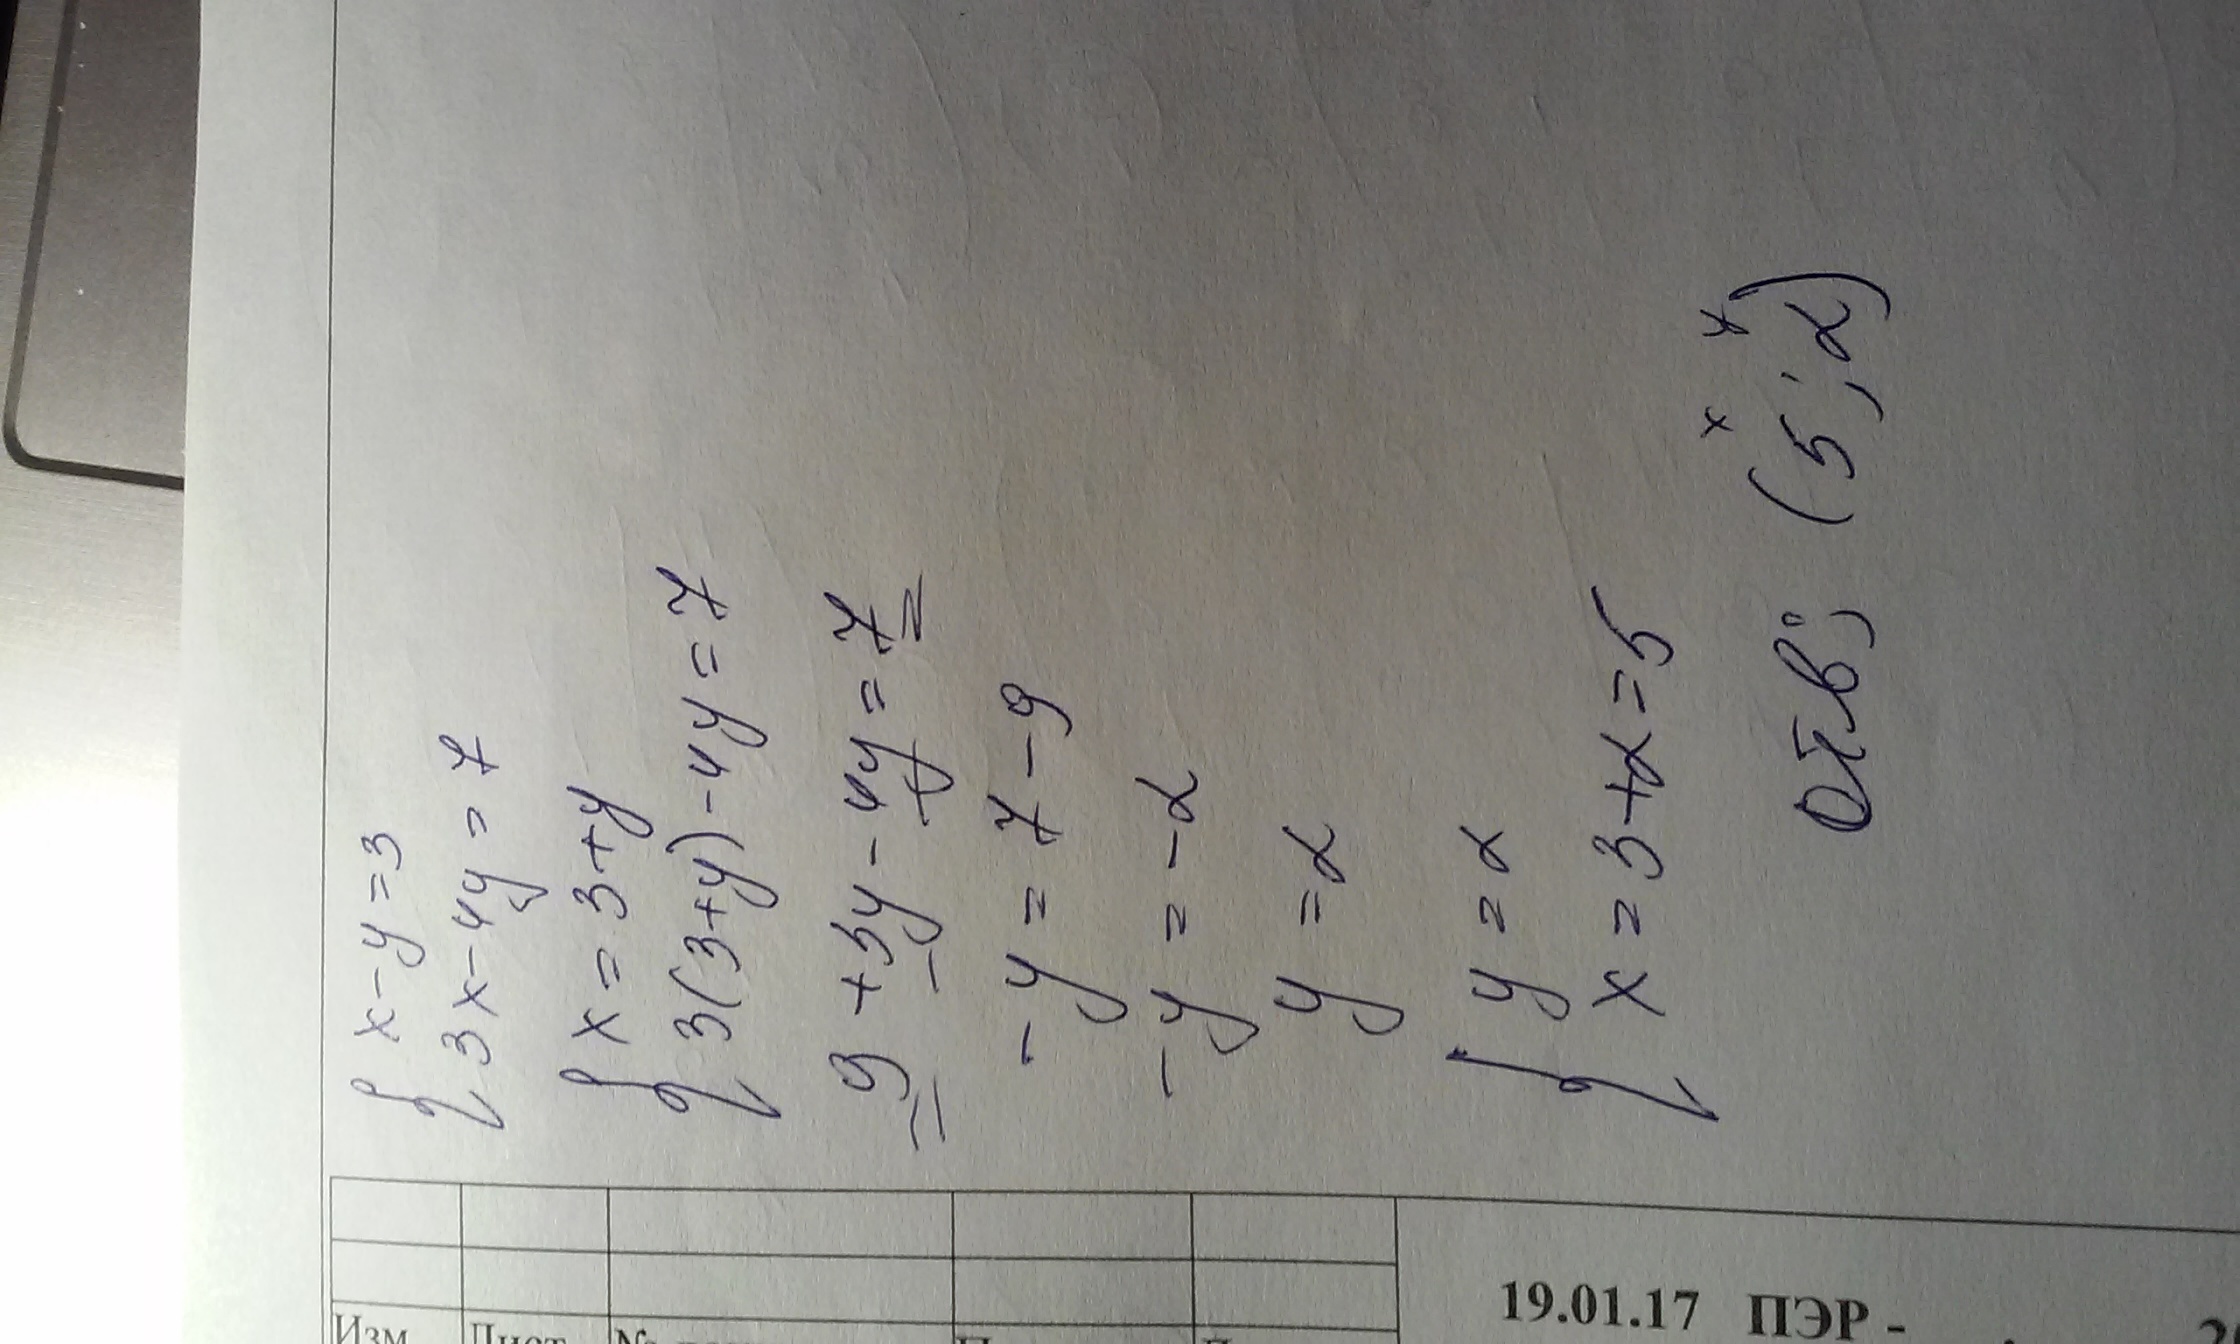 { x - y = 3
3x - 4y = 7
{ x = 3 + y
3(3+y) - 4y = 7
9 + 3y - 4y = 7
-y = 7 - 9
-y = -2
y = 2
{ y = 2
x = 3 + 2 = 5
x y
Отв: (5; 2)
Изм Лист
19.01.17 ПЭР -